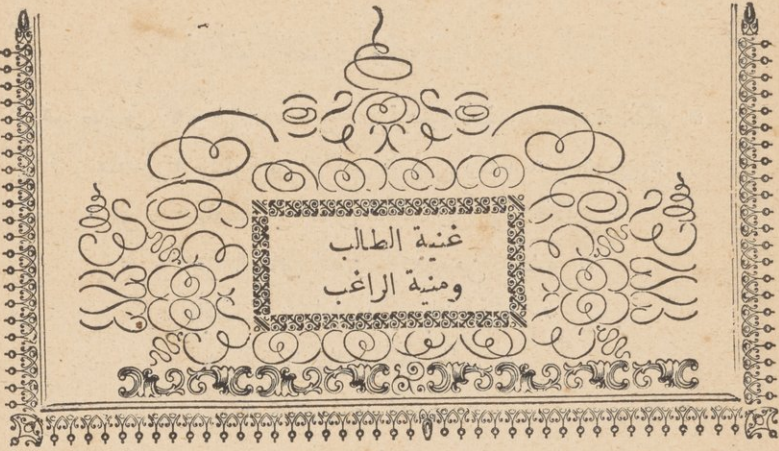 غنية الطالب
ومنية الراغب